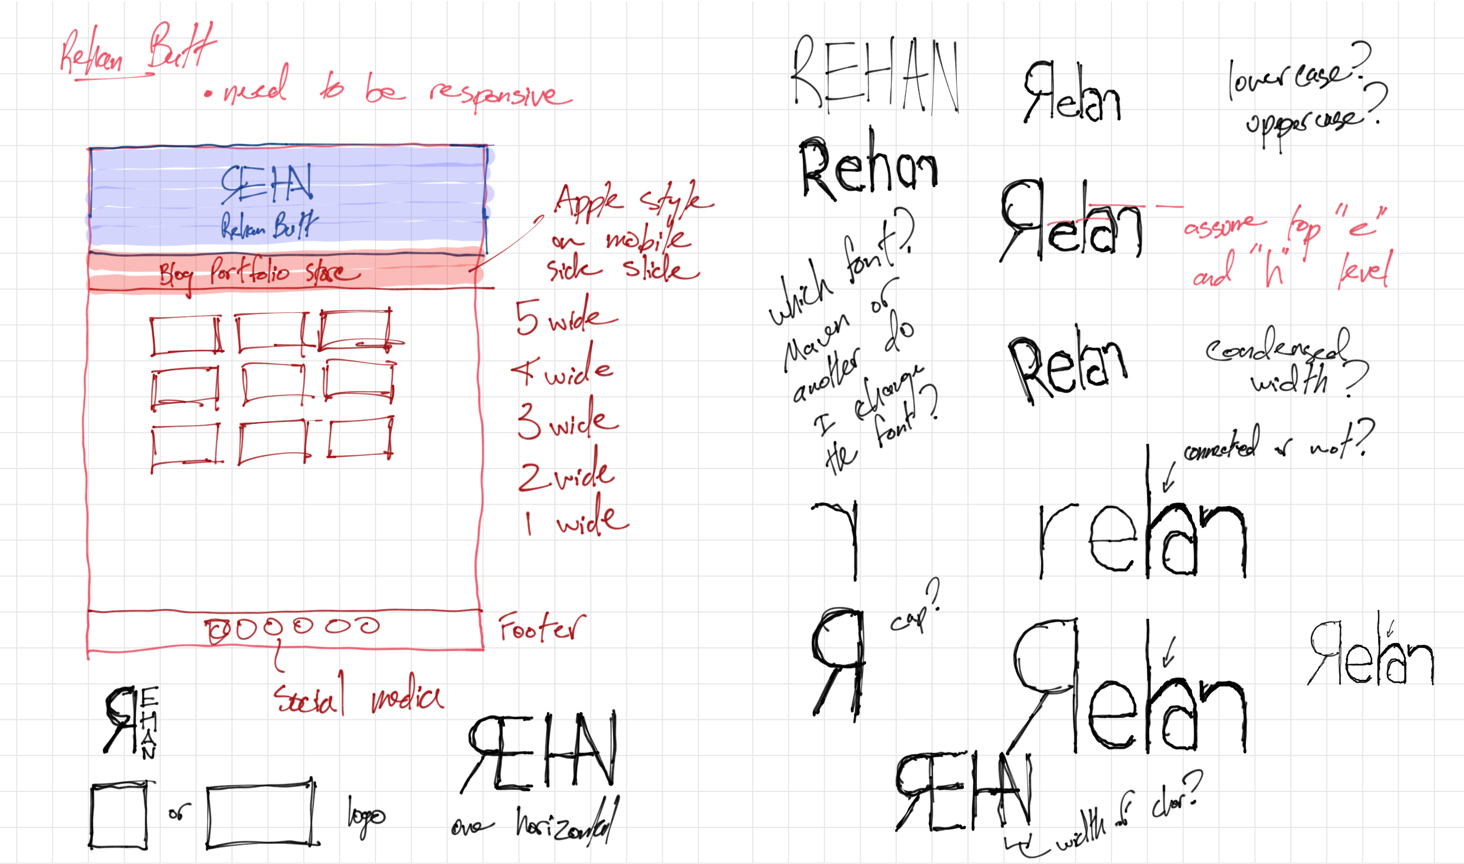 Rehan Butt
• need to be responsive
ЯEHAN
Rehan Butt
Blog Portfolio Store
Apple style
on mobile
side slide
5 wide
4 wide
3 wide
2 wide
1 wide
Footer
Social media
Я
E
H
A
N
or
logo
ЯEHAN
one horizontal
REHAN
Rehan
which font?
Maven or
another do
I change
the font?
Яehan
lowercase?
uppercase?
Яehan
assume top "e"
and "h" level
Rehan
condensed
width?
connected or not?
r
rehan
Я
cap?
Яehan
Яehan
ЯEHAN
width of char?